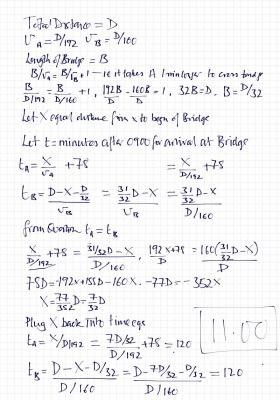 Total Distance = D
VA = D/192 VB = D/160
Length of Bridge = B
B/VA = B/VB + 1 – ie it takes A 1 min longer to cross bridge
B/(D/192) = B/(D/160) + 1, 192B - 160B = 1, 32B = D, B = D/32
Let X equal distance from x to begin of Bridge
Let t = minutes after 0900 for arrival at Bridge
tA = X/VA + 78 = X/(D/192) + 78
tB = (D-X-D/32)/VB = (31/32 D - X)/VB = (31/32 D - X)/(D/160)
from Question tA = tB
X/(D/192) + 78 = (31/32 D - X)/(D/160), (192X+78)/D = 160(31/32 D - X)/D
78D = -192X + 155D - 160X. -77D = -352X
X = 77/352 D = 7/32 D
Plug X back into time eqs
tA = X/(D/192) = (7D/32)/(D/192) + 78 = 120
11.00
tB = (D-X-D/32)/(D/160) = (D-7D/32-D/32)/(D/160) = 120